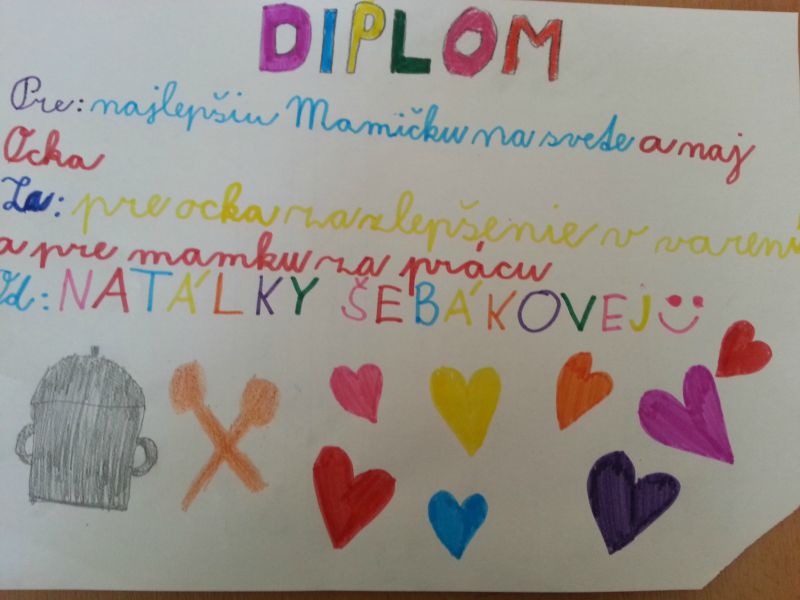 DIPLOM
Pre: najlepšiu Mamičku na svete a naj
Ocka
Za: pre ocka za zlepšenie v varení
a pre mamku za prácu
Od: NATÁLKY ŠEBÁKOVEJ